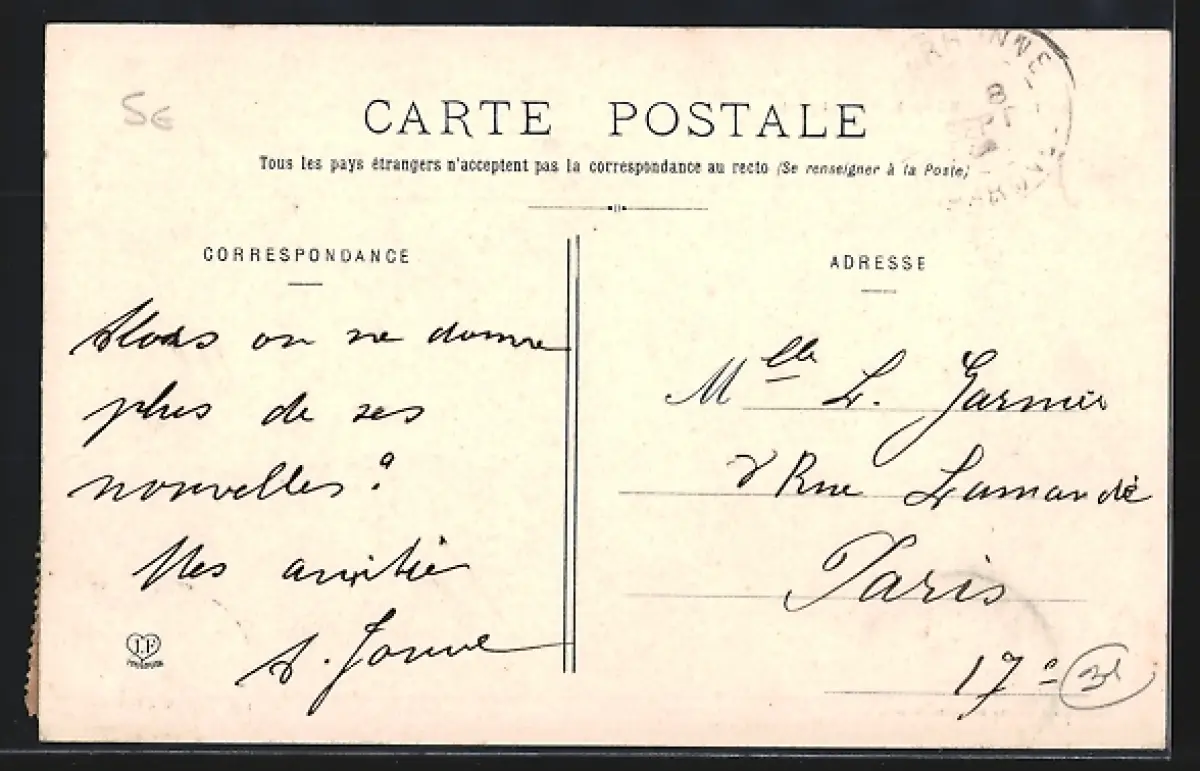 5€
CARTE POSTALE
Tous les pays étrangers n'acceptent pas la correspondance au recto (Se renseigner à la Poste)
CORRESPONDANCE
Alors on ne donne
plus de ses
nouvelles ?
Mes amitiés
A. Jouve
ADRESSE
Mlle L. Garnier
Rue Lamandé
Paris
17e